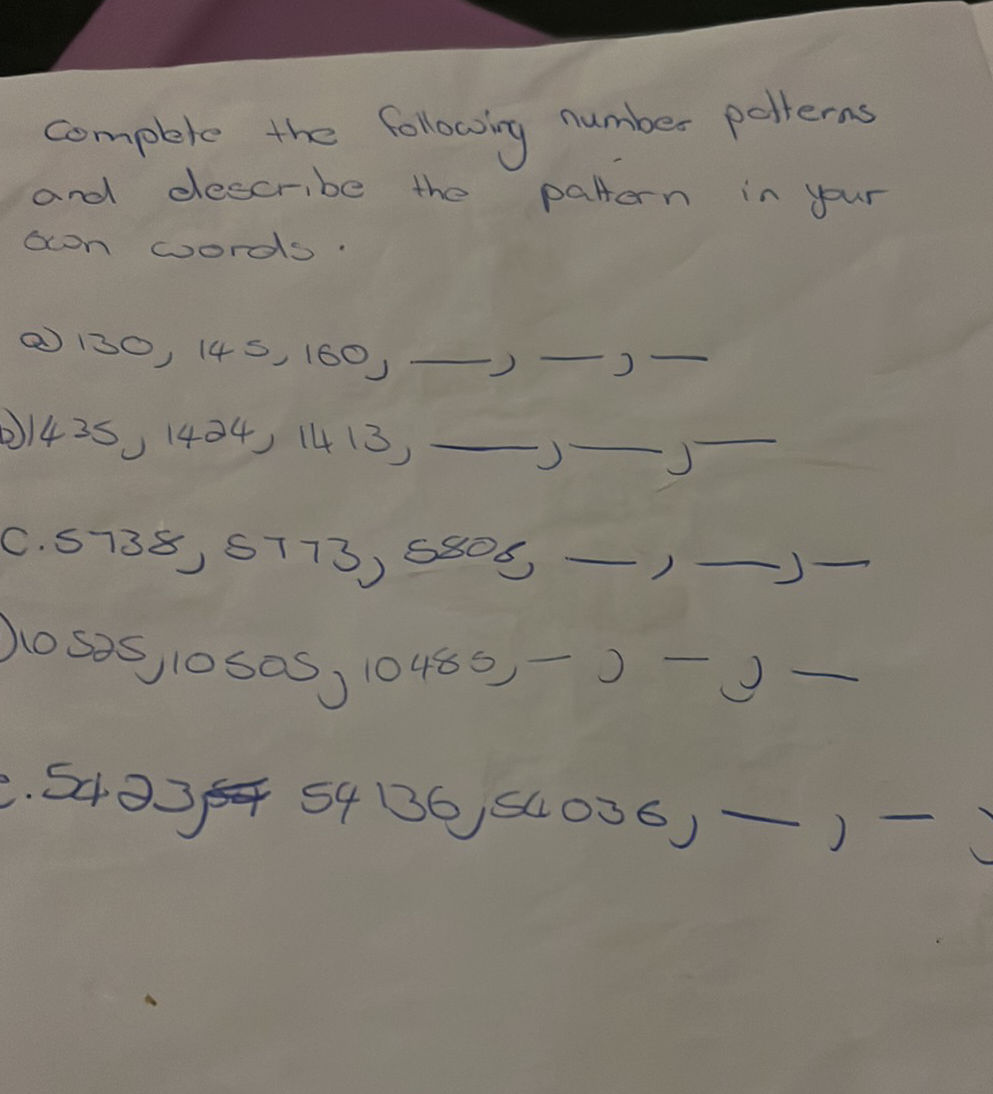 Complete the following number patterns
and describe the pattern in your
own words.
a) 130, 145, 160, __, __, __
b) 1435, 1424, 1413, __, __, __
C. 5738, 5773, 5808, __, __, __
) 10525, 10505, 10485, __, __, __
e. 5423, 54136, 54036, __, __,